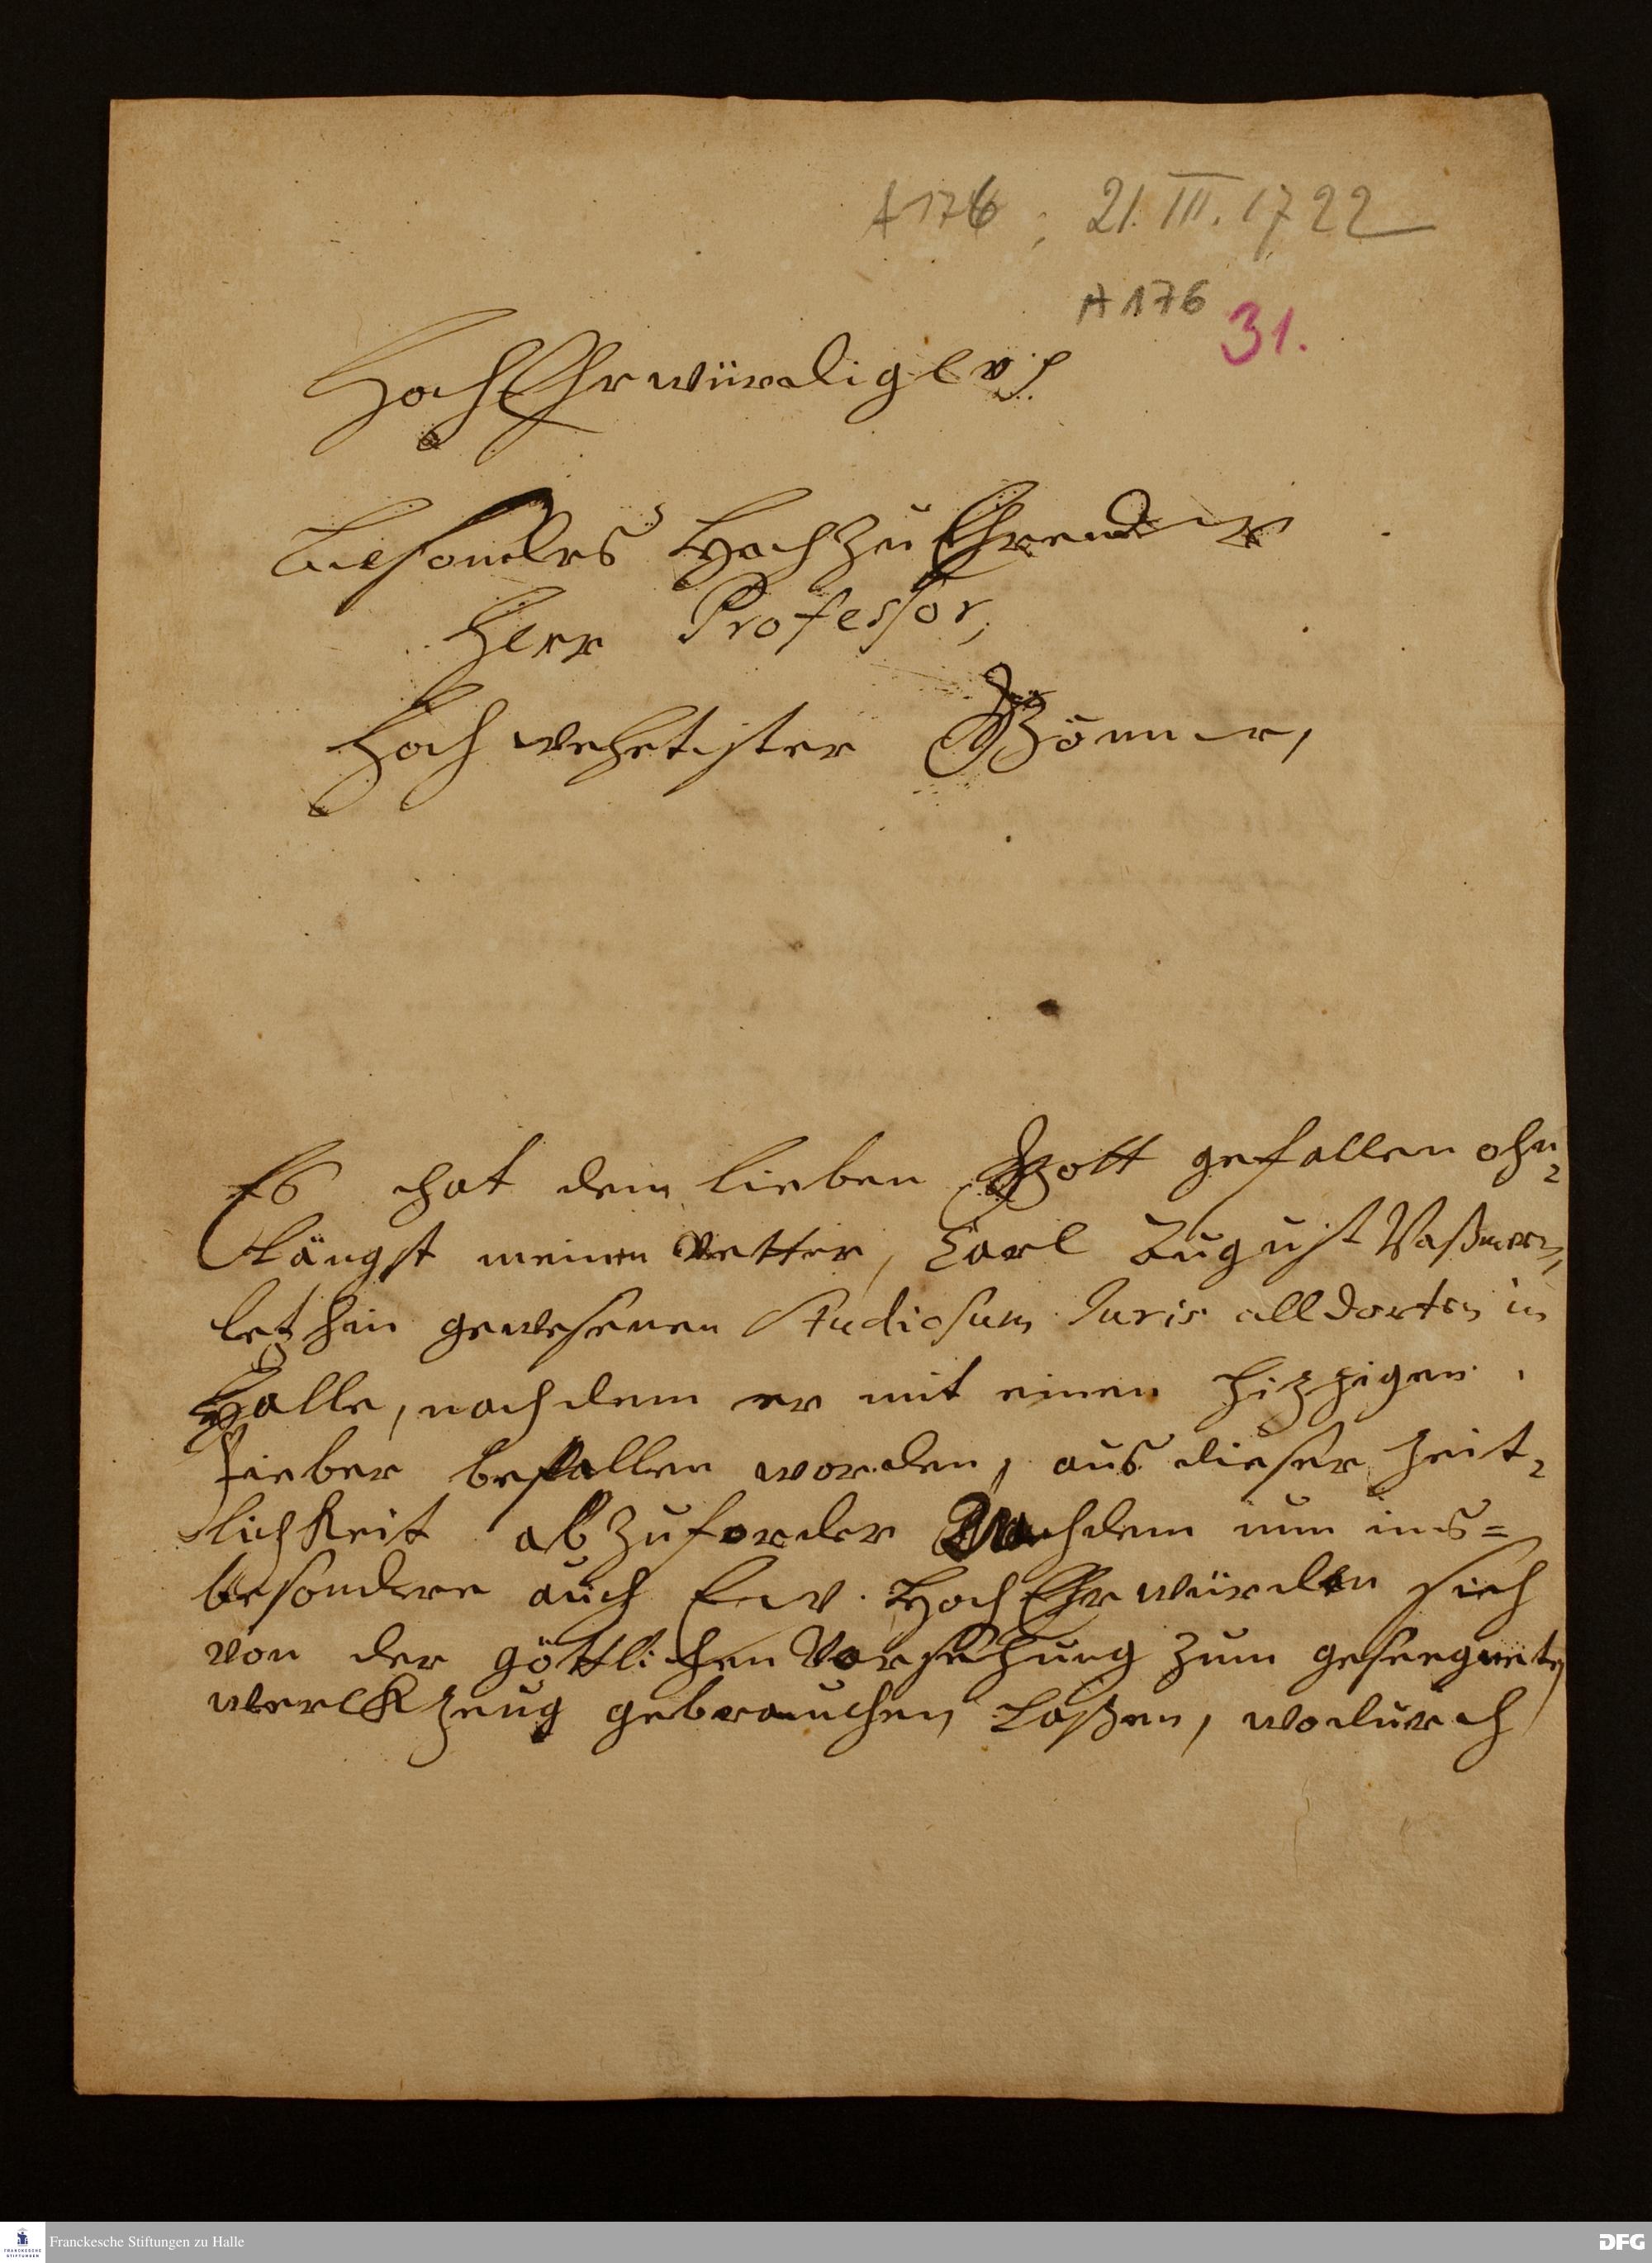 A 176 ; 21. III. 1722
A 176
31.
HochEhrwürdiger,
Besonders HochzuEhrender
Herr Professor,
Hoch wehrtister Gönner,
Es hat dem lieben Gott gefallen ohn-
längst meinen Vetter, Carl August
letzhin gewesenen Studiosum Juris alldorten in
Halle, nachdem er mit einen hizzigen
Fieber befallen worden, aus dieser Zeit-
lichKeit abzuforder Nachdem nun ins=
besondere auch Ew. HochEhrwürden sich
von der göttlichen Vorsehung zum geseegneten
WerckZeug gebrauchen Laßen, wodurch
Franckesche Stiftungen zu Halle
FRANCKESCHE
STIFTUNGEN
DFG